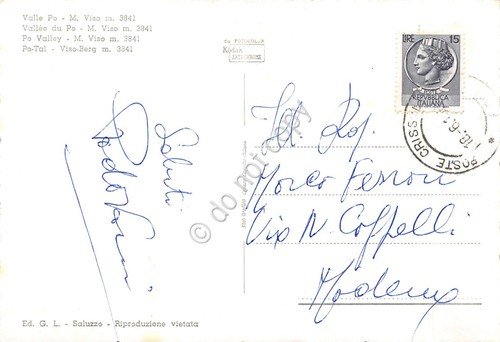 Valle Po - M. Viso m. 3841
Vallée du Po - M. Viso m. 3841
Po Valley - M. Viso m. 3841
Po-Tal - Viso-Berg m. 3841
Kodak
LIRE 15
REPUBBLICA
ITALIANA
POSTE CRISS
Saluti
Marco Ferrari
Via N. Coppelli
Modena
do not copy
Ed. G. L. - Saluzzo - Riproduzione vietata